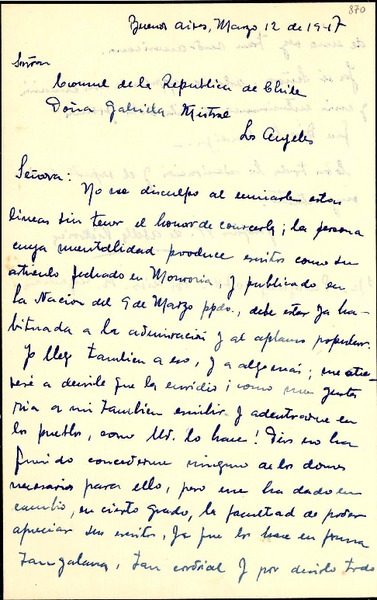 370
Buenos Aires, Marzo 12 de 1947
Señora
Consul de la Republica de Chile
Doña Gabriela Mistral
Los Angeles
Señora:
No me disculpo al enviarle estas
lineas sin tener el honor de conocerla; la persona
cuya mentalidad produce escritos como su
articulo fechado en Monrovia, y publicado en
la Nacion del 9 de Marzo ppdo., debe estar ya ha-
bituada a la admiracion y al aplauso popular.
Yo llego tambien a eso, y a algo mas; me atre-
veré a decirle que la envidio; ¡como me gusta
ria a mi tambien escribir y adentrarme en
los pueblos, como Ud. lo hace! Dios no ha
querido concederme ninguno de los dones
necesarios para ello, pero me ha dado en
cambio, en cierto grado, la facultad de poder
apreciar sus escritos, ya que los hace en forma
tan galana, tan cordial y por decirlo todo